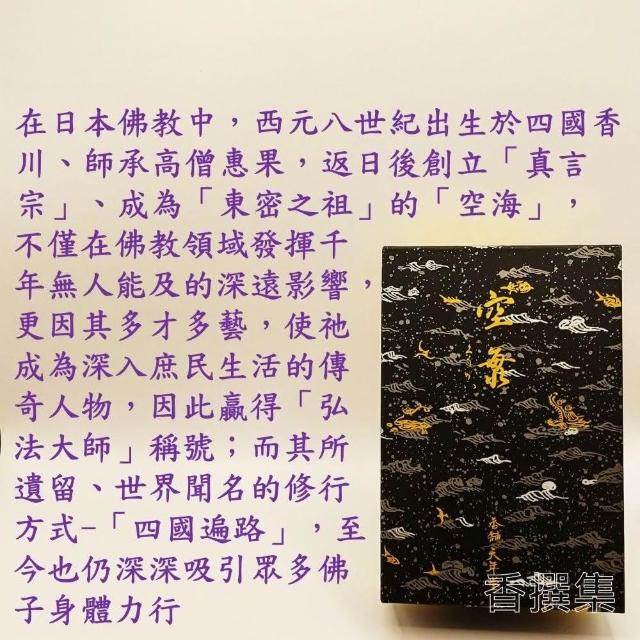 在日本佛教中，西元八世紀出生於四國香
川、師承高僧惠果，返日後創立「真言
宗」、成為「東密之祖」的「空海」，
不僅在佛教領域發揮千
年無人能及的深遠影響，
更因其多才多藝，使祂
成為深入庶民生活的傳
奇人物，因此贏得「弘
法大師」稱號；而其所
遺留、世界聞名的修行
方式–「四國遍路」，至
今也仍深深吸引眾多佛
子身體力行
香撰集